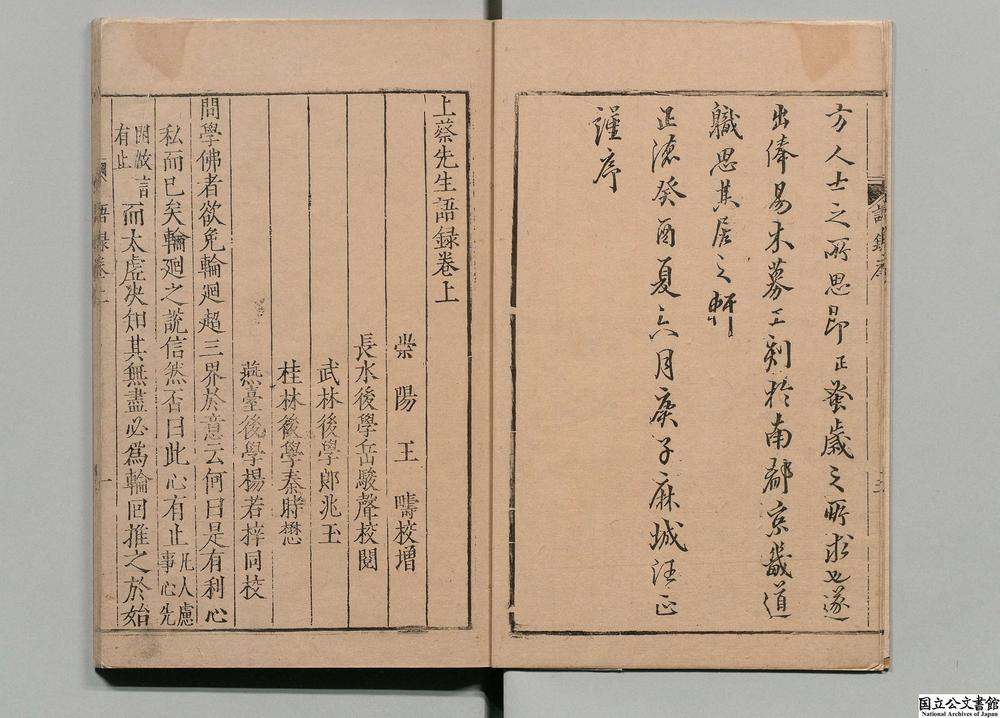 方人士之所思昂正蚤歲之所求也遂
出俸易木募工刻於南都京畿道
職思其居之軒
正德癸酉夏六月庚子麻城汪正
謹序
上蔡先生語録卷上
崇陽王疇校增
長水後學岳駿聲校閱
武林後學郎兆玉
桂林後學秦時懋
燕臺後學楊若梓同校
問學佛者欲免輪廻超三界於意云何曰是有利心
私而已矣輪廻之說信然否曰此心有止凡人慮事心先
有止而太虛决知其無盡必爲輪回推之於始
語録卷上
一
国立公文書館
National Archives of Japan